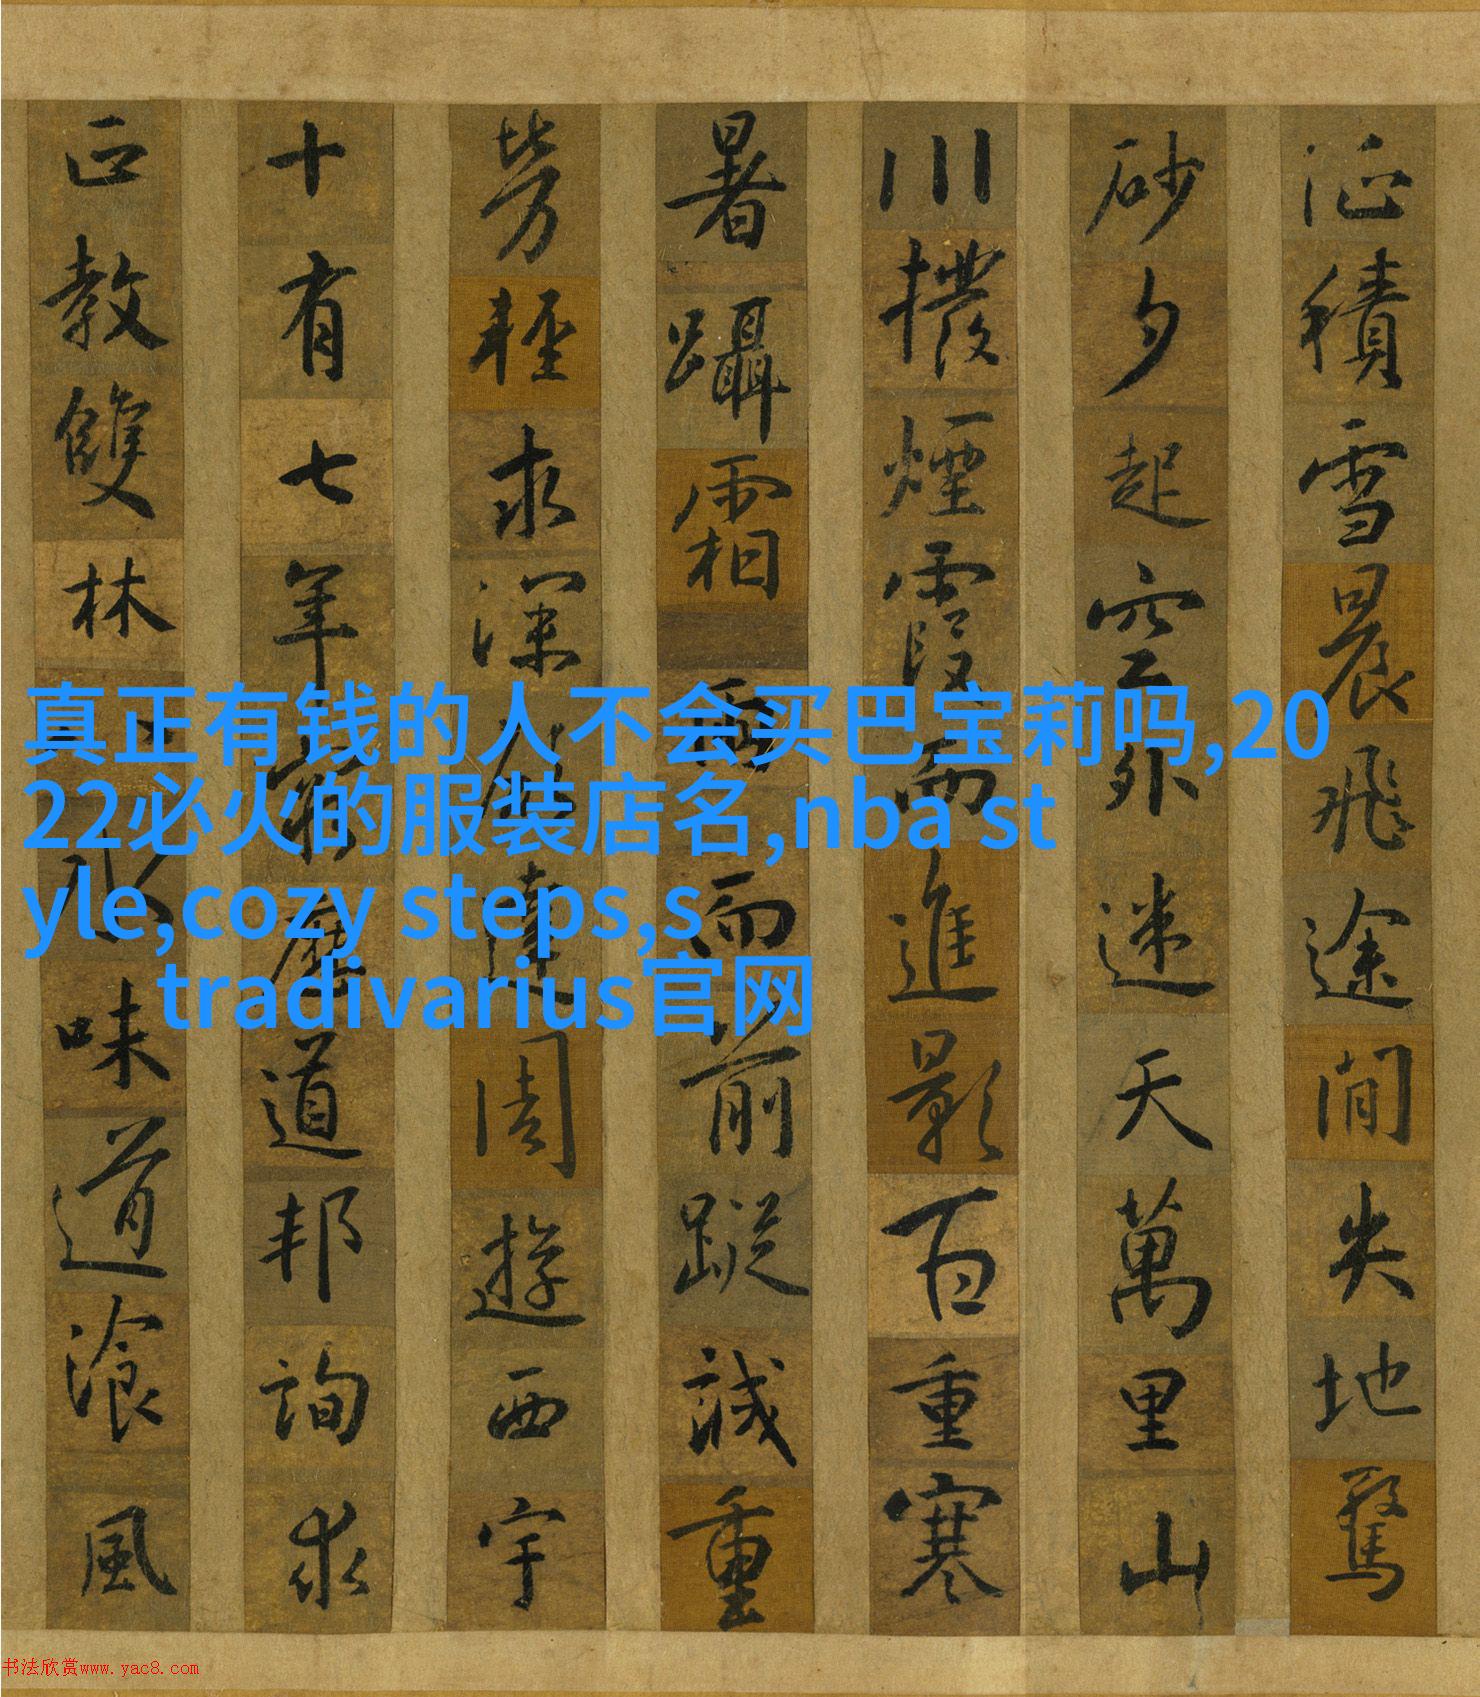 征積雪晨飛途間失地驚
砂夕起空外迷天萬里山
川撥煙霞而進影百重寒
暑躡霜雨而前蹤誠重
勞輕求深願達周遊西宇
十有七年窮歷道邦詢求
正教雙林八水味道湌風
真正有钱的人不会买巴宝莉吗,20
22必火的服装店名,nba st
yle,cozy steps,s
tradivarius官网
书法欣赏www.yac8.com